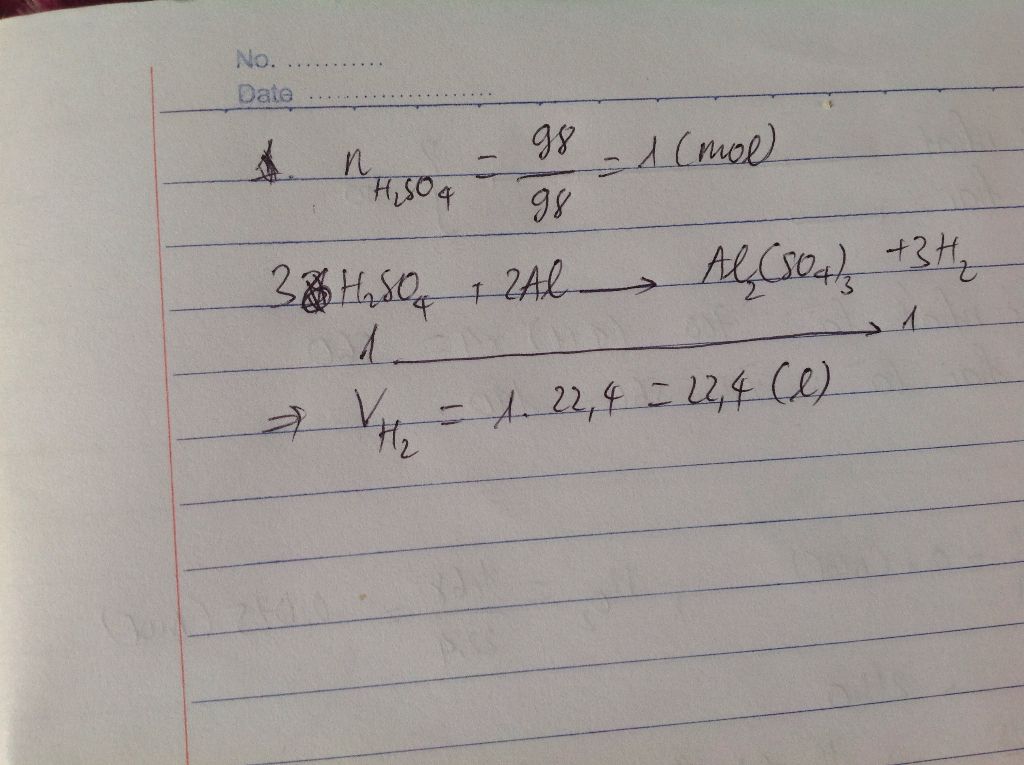 No. ...........
Date .....................
1. n H₂SO₄ = 98/98 = 1 (mol)
3 H₂SO₄ + 2Al → Al₂(SO₄)₃ + 3H₂
1 → 1
⇒ V H₂ = 1. 22,4 = 22,4 (l)